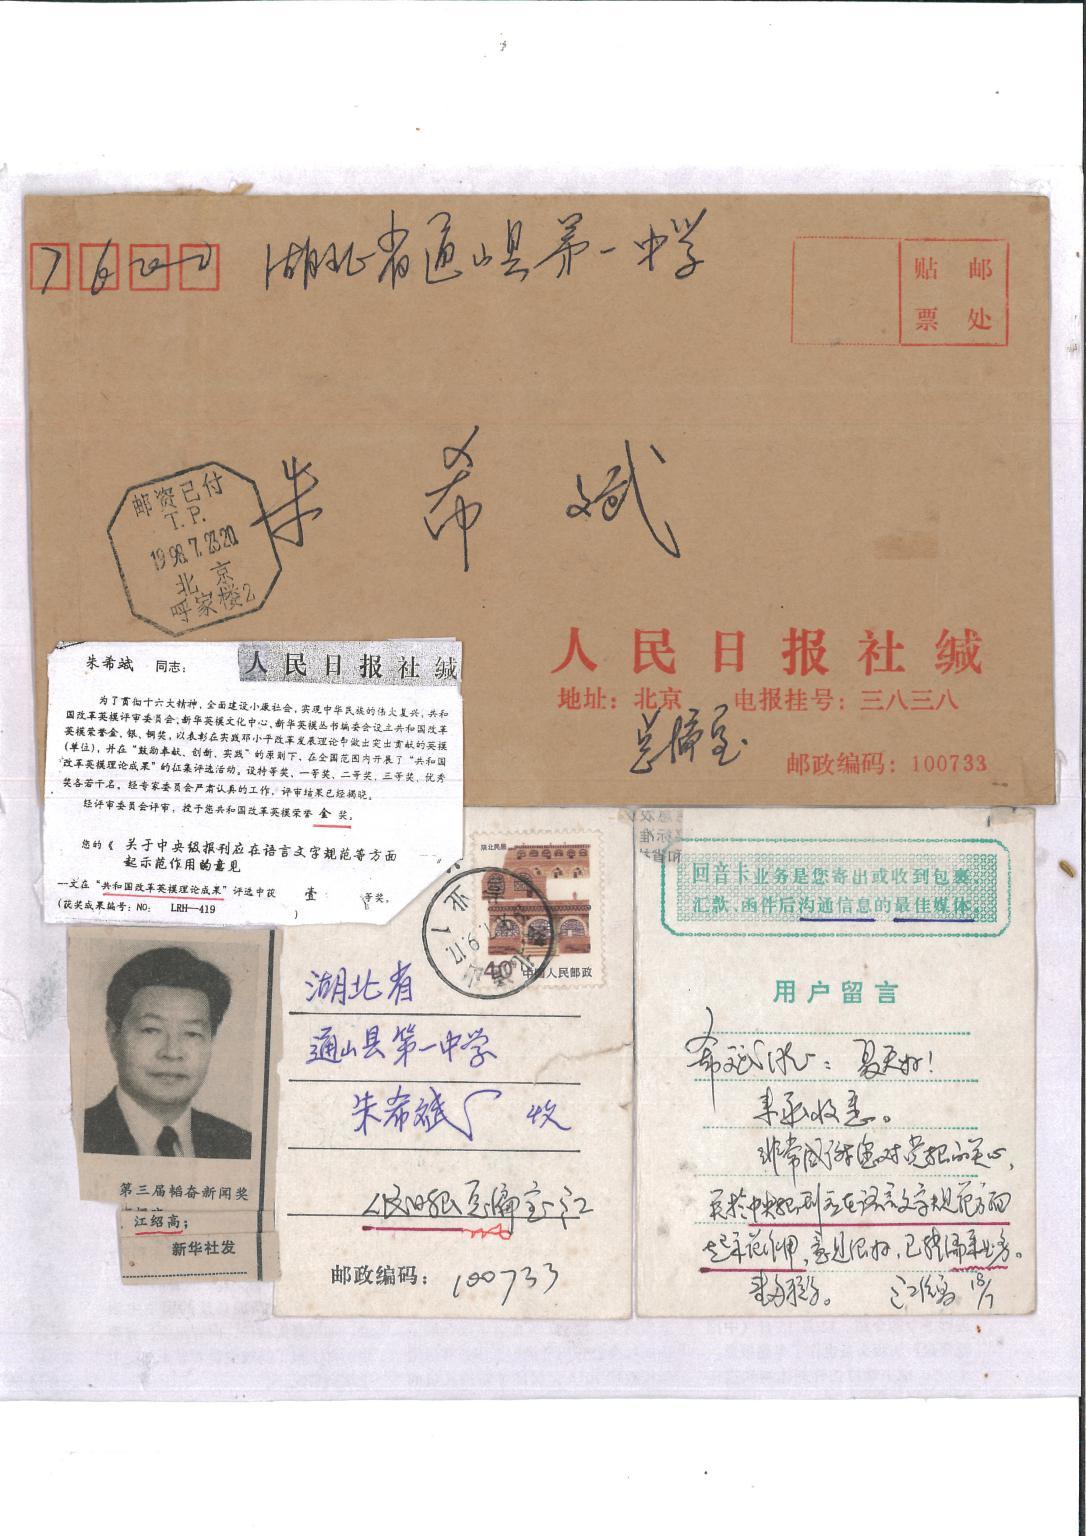 湖北省通山县第一中学
贴 邮
票 处
朱 希 斌
邮资已付
T.P.
1998.7.2320
北 京
呼家楼2
人民日报社缄
地址：北京 电报挂号：三八三八
总编室
邮政编码：100733
朱希斌 同志：
人民日报社缄
为了贯彻十六大精神，全面建设小康社会，实现中华民族的伟大复兴，共和
国改革英模评审委员会、新华英模文化中心、新华英模丛书编委会设立共和国改革
英模荣誉金、银、铜奖，以表彰在实践邓小平改革发展理论中做出突出贡献的英模
(单位)，并在“鼓励奉献、创新、实践”的原则下、在全国范围内开展了“共和国
改革英模理论成果”的征集评选活动，设特等奖、一等奖、二等奖、三等奖、优秀
奖各若干名。经专家委员会严肃认真的工作，评审结果已经揭晓。
经评审委员会评审，授于您共和国改革英模荣誉 金 奖。
您的《 关于中央级报刊应在语言文字规范等方面
起示范作用的意见
一文在“共和国改革英模理论成果”评选中获 壹 等奖。
(获奖成果编号：NO: LRH—419 )
第三届韬奋新闻奖
江绍高；
新华社发
陕北民居
中国人民邮政
湖北省
通山县第一中学
朱希斌 收
人民日报总编室 江
邮政编码：100733
回音卡业务是您寄出或收到包裹、
汇款、函件后沟通信息的最佳媒体。
用户留言
希斌 ：夏天好！
来函收悉。
非常感谢您对党报的关心，
关于中央报刊应在语言文字规范方面
起示范作用，意见很好，已转编采业务。
18/7